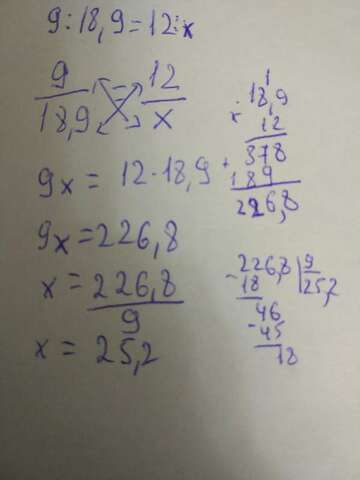 9 : 18,9 = 12 : x
9/18,9 = 12/x
9x = 12 · 18,9
9x = 226,8
x = 226,8/9
x = 25,2
1
18,9
x 12
+ 378
189
226,8
- 226,8 | 9
18 25,2
46
- 45
18